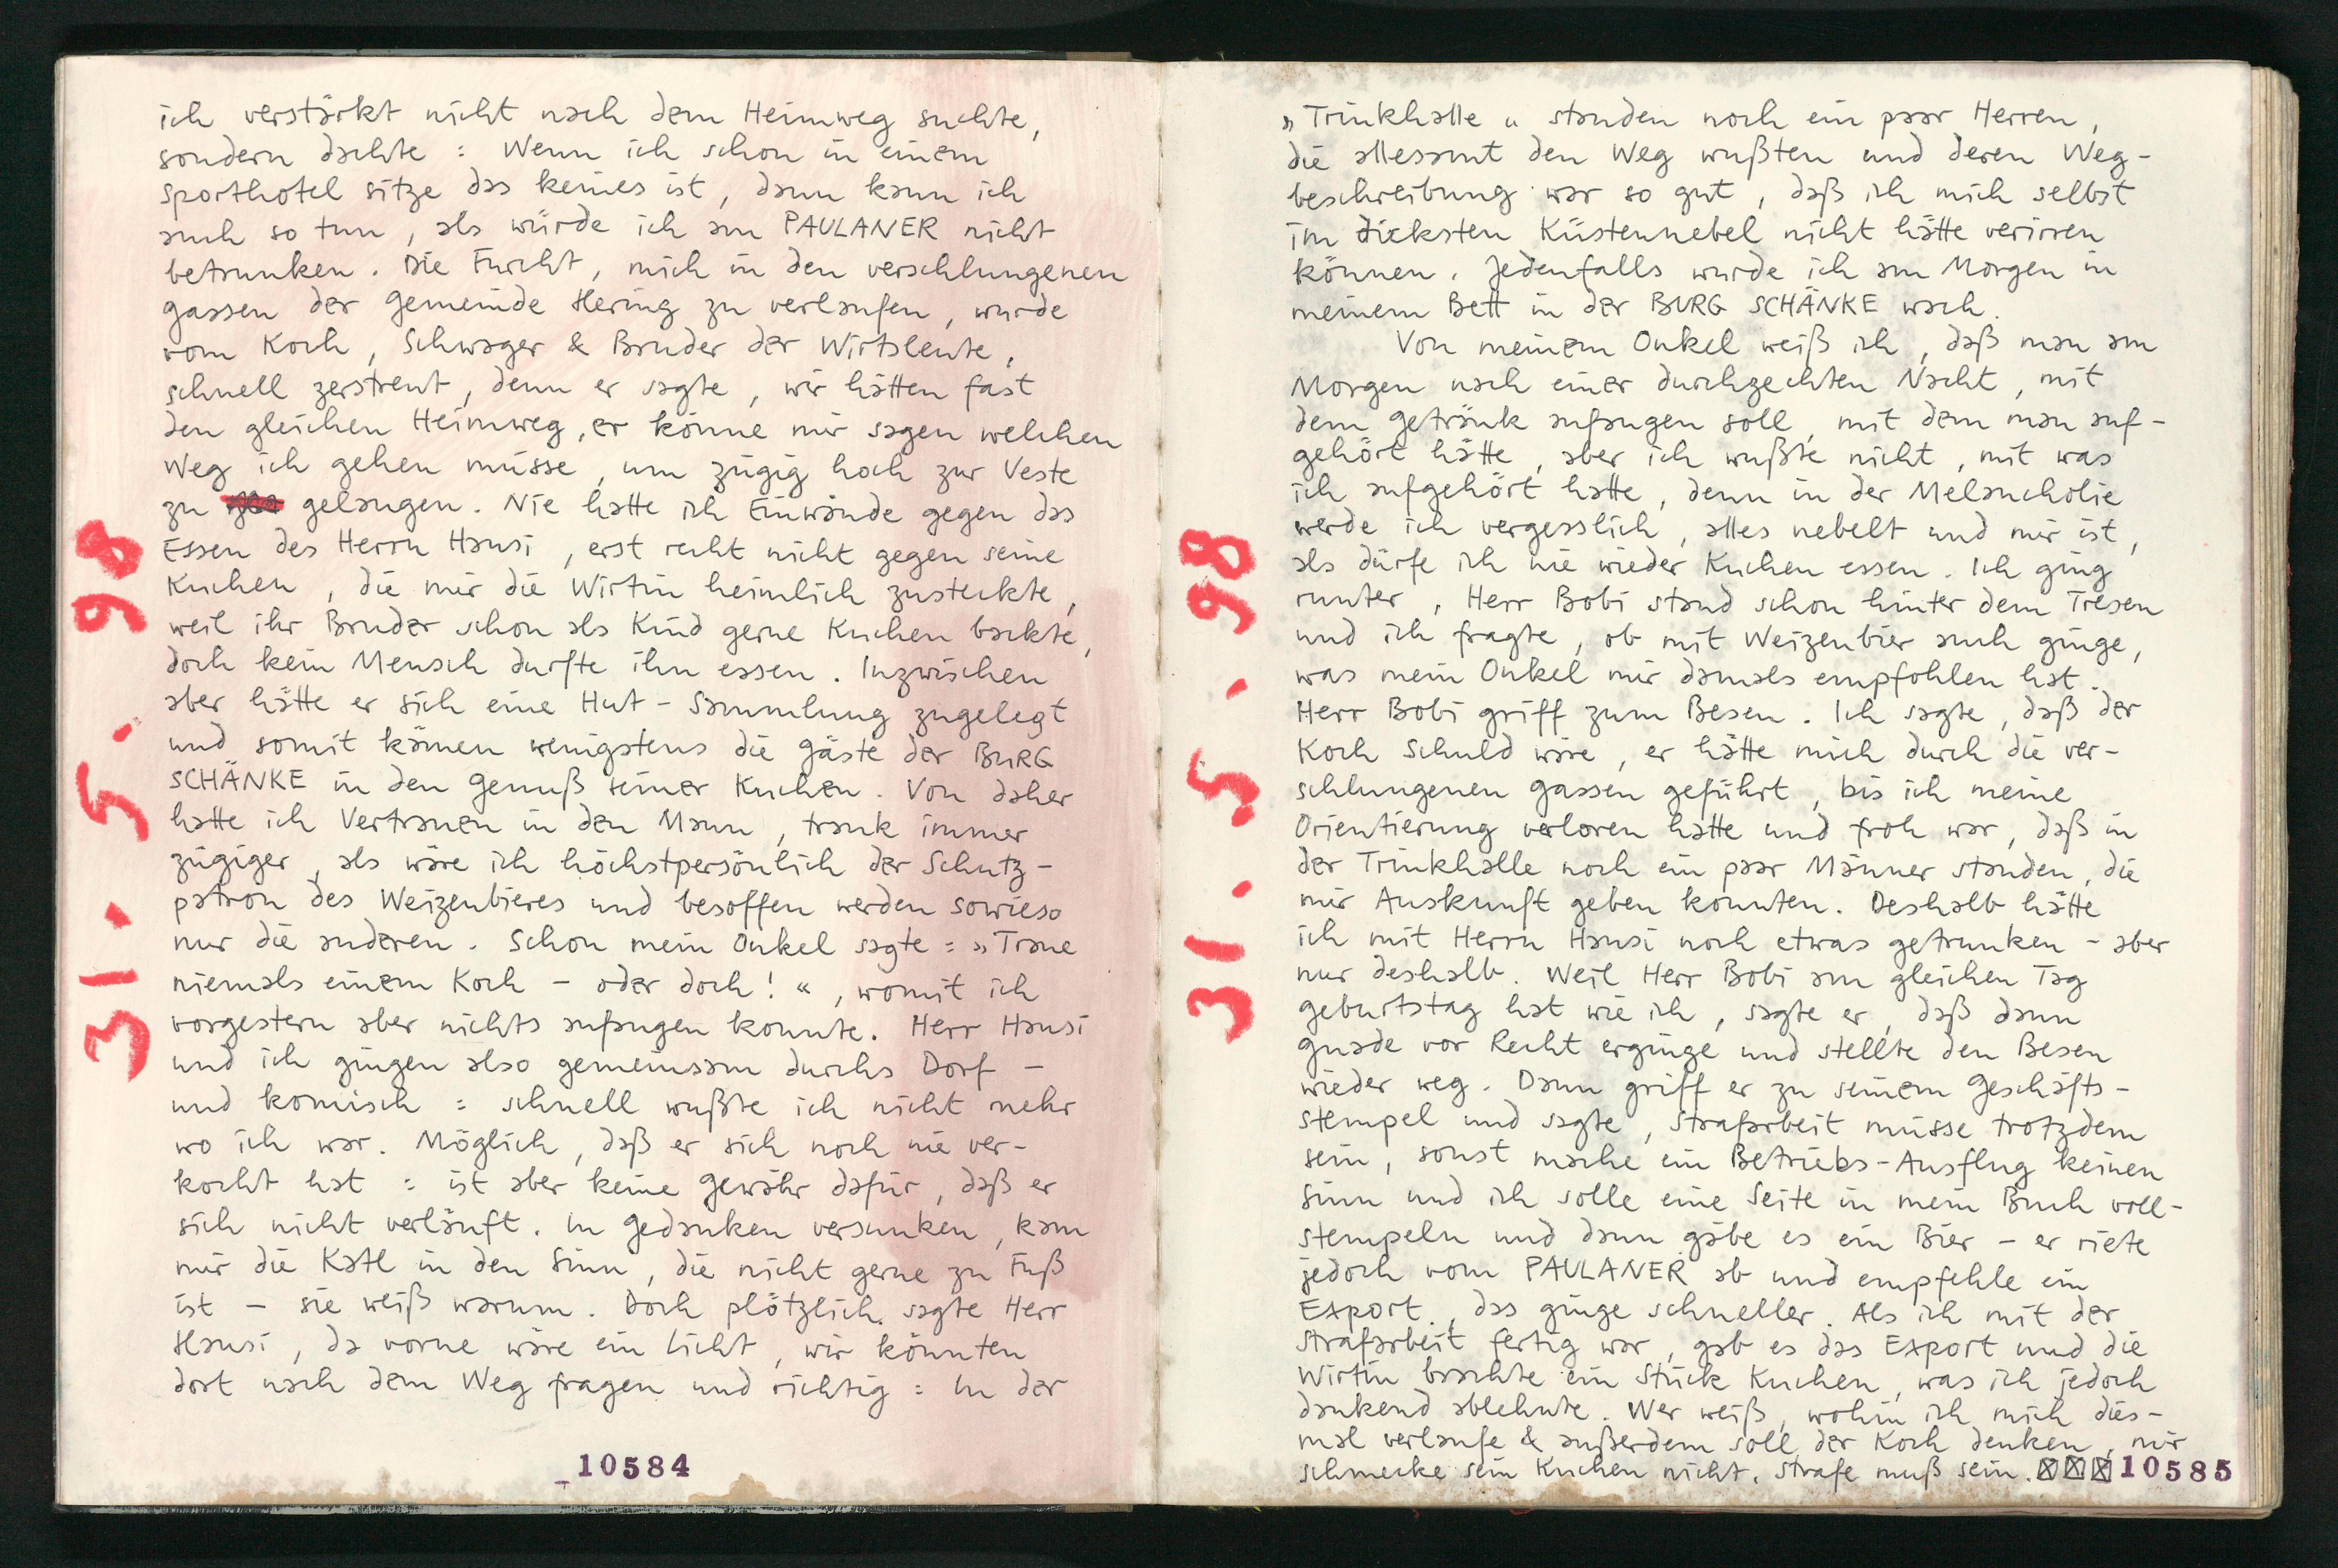 ich verstärkt nicht nach dem Heimweg suchte,
sondern dachte : Wenn ich schon in einem
Sporthotel sitze das keines ist, dann kann ich
auch so tun, als würde ich am PAULANER nicht
betrunken. Die Furcht, mich in den verschlungenen
Gassen der Gemeinde Hering zu verlaufen, wurde
vom Koch, Schwager & Bruder der Wirtsleute,
schnell zerstreut, denn er sagte, wir hätten fast
den gleichen Heimweg, er könne mir sagen welchen
Weg ich gehen müsse, um zügig hoch zur Veste
zu gelangen. Nie hatte ich Einwände gegen das
Essen des Herrn Hansi, erst recht nicht gegen seine
Kuchen, die mir die Wirtin heimlich zusteckte,
weil ihr Bruder schon als Kind gerne Kuchen backte,
doch kein Mensch durfte ihn essen. Inzwischen
aber hätte er sich eine Hut-Sammlung zugelegt
und somit kämen wenigstens die Gäste der BURG
SCHÄNKE in den Genuß seiner Kuchen. Von daher
hatte ich Vertrauen in den Mann, trank immer
zügiger, als wäre ich höchstpersönlich der Schutz-
patron des Weizenbieres und besoffen werden sowieso
nur die anderen. Schon mein Onkel sagte : „Traue
niemals einem Koch – oder doch! “, womit ich
vorgestern aber nichts anfangen konnte. Herr Hansi
und ich gingen also gemeinsam durchs Dorf –
und komisch : schnell wußte ich nicht mehr
wo ich war. Möglich, daß er sich noch nie ver-
kocht hat : ist aber keine Gewähr dafür, daß er
sich nicht verläuft. In Gedanken versunken, kam
mir die Katl in den Sinn, die nicht gerne zu Fuß
ist – sie weiß warum. Doch plötzlich sagte Herr
Hansi, da vorne wäre ein Licht, wir könnten
dort nach dem Weg fragen und richtig : In der
31. 5. 98
10584
„Trinkhalle“ standen noch ein paar Herren,
die allesamt den Weg wußten und deren Weg-
beschreibung war so gut, daß ich mich selbst
im dicksten Küstennebel nicht hätte verirren
können. Jedenfalls wurde ich am Morgen in
meinem Bett in der BURG SCHÄNKE wach.
Von meinem Onkel weiß ich, daß man am
Morgen nach einer durchzechten Nacht, mit
dem Getränk anfangen soll, mit dem man auf-
gehört hätte, aber ich wußte nicht, mit was
ich aufgehört hatte, denn in der Melancholie
werde ich vergesslich, alles nebelt und mir ist,
als dürfe ich nie wieder Kuchen essen. Ich ging
runter, Herr Bobi stand schon hinter dem Tresen
und ich fragte, ob mit Weizenbier auch ginge,
was mein Onkel mir damals empfohlen hat.
Herr Bobi griff zum Besen. Ich sagte, daß der
Koch Schuld wäre, er hätte mich durch die ver-
schlungenen Gassen geführt, bis ich meine
Orientierung verloren hatte und froh war, daß in
der Trinkhalle noch ein paar Männer standen, die
mir Auskunft geben konnten. Deshalb hätte
ich mit Herrn Hansi noch etwas getrunken – aber
nur deshalb. Weil Herr Bobi am gleichen Tag
Geburtstag hat wie ich, sagte er, daß dann
Gnade vor Recht erginge und stellte den Besen
wieder weg. Dann griff er zu seinem Geschäfts-
stempel und sagte, Strafarbeit müsse trotzdem
sein, sonst mache ein Betriebs-Ausflug keinen
Sinn und ich solle eine Seite in mein Buch voll-
stempeln und dann gäbe es ein Bier – er riete
jedoch vom PAULANER ab und empfehle ein
Export, das ginge schneller. Als ich mit der
Strafarbeit fertig war, gab es das Export und die
Wirtin brachte ein Stück Kuchen, was ich jedoch
dankend ablehnte. Wer weiß, wohin ich mich dies-
mal verlaufe & außerdem soll der Koch denken, mir
schmecke sein Kuchen nicht. Strafe muß sein. ☒☒☒ 10585
31. 5. 98